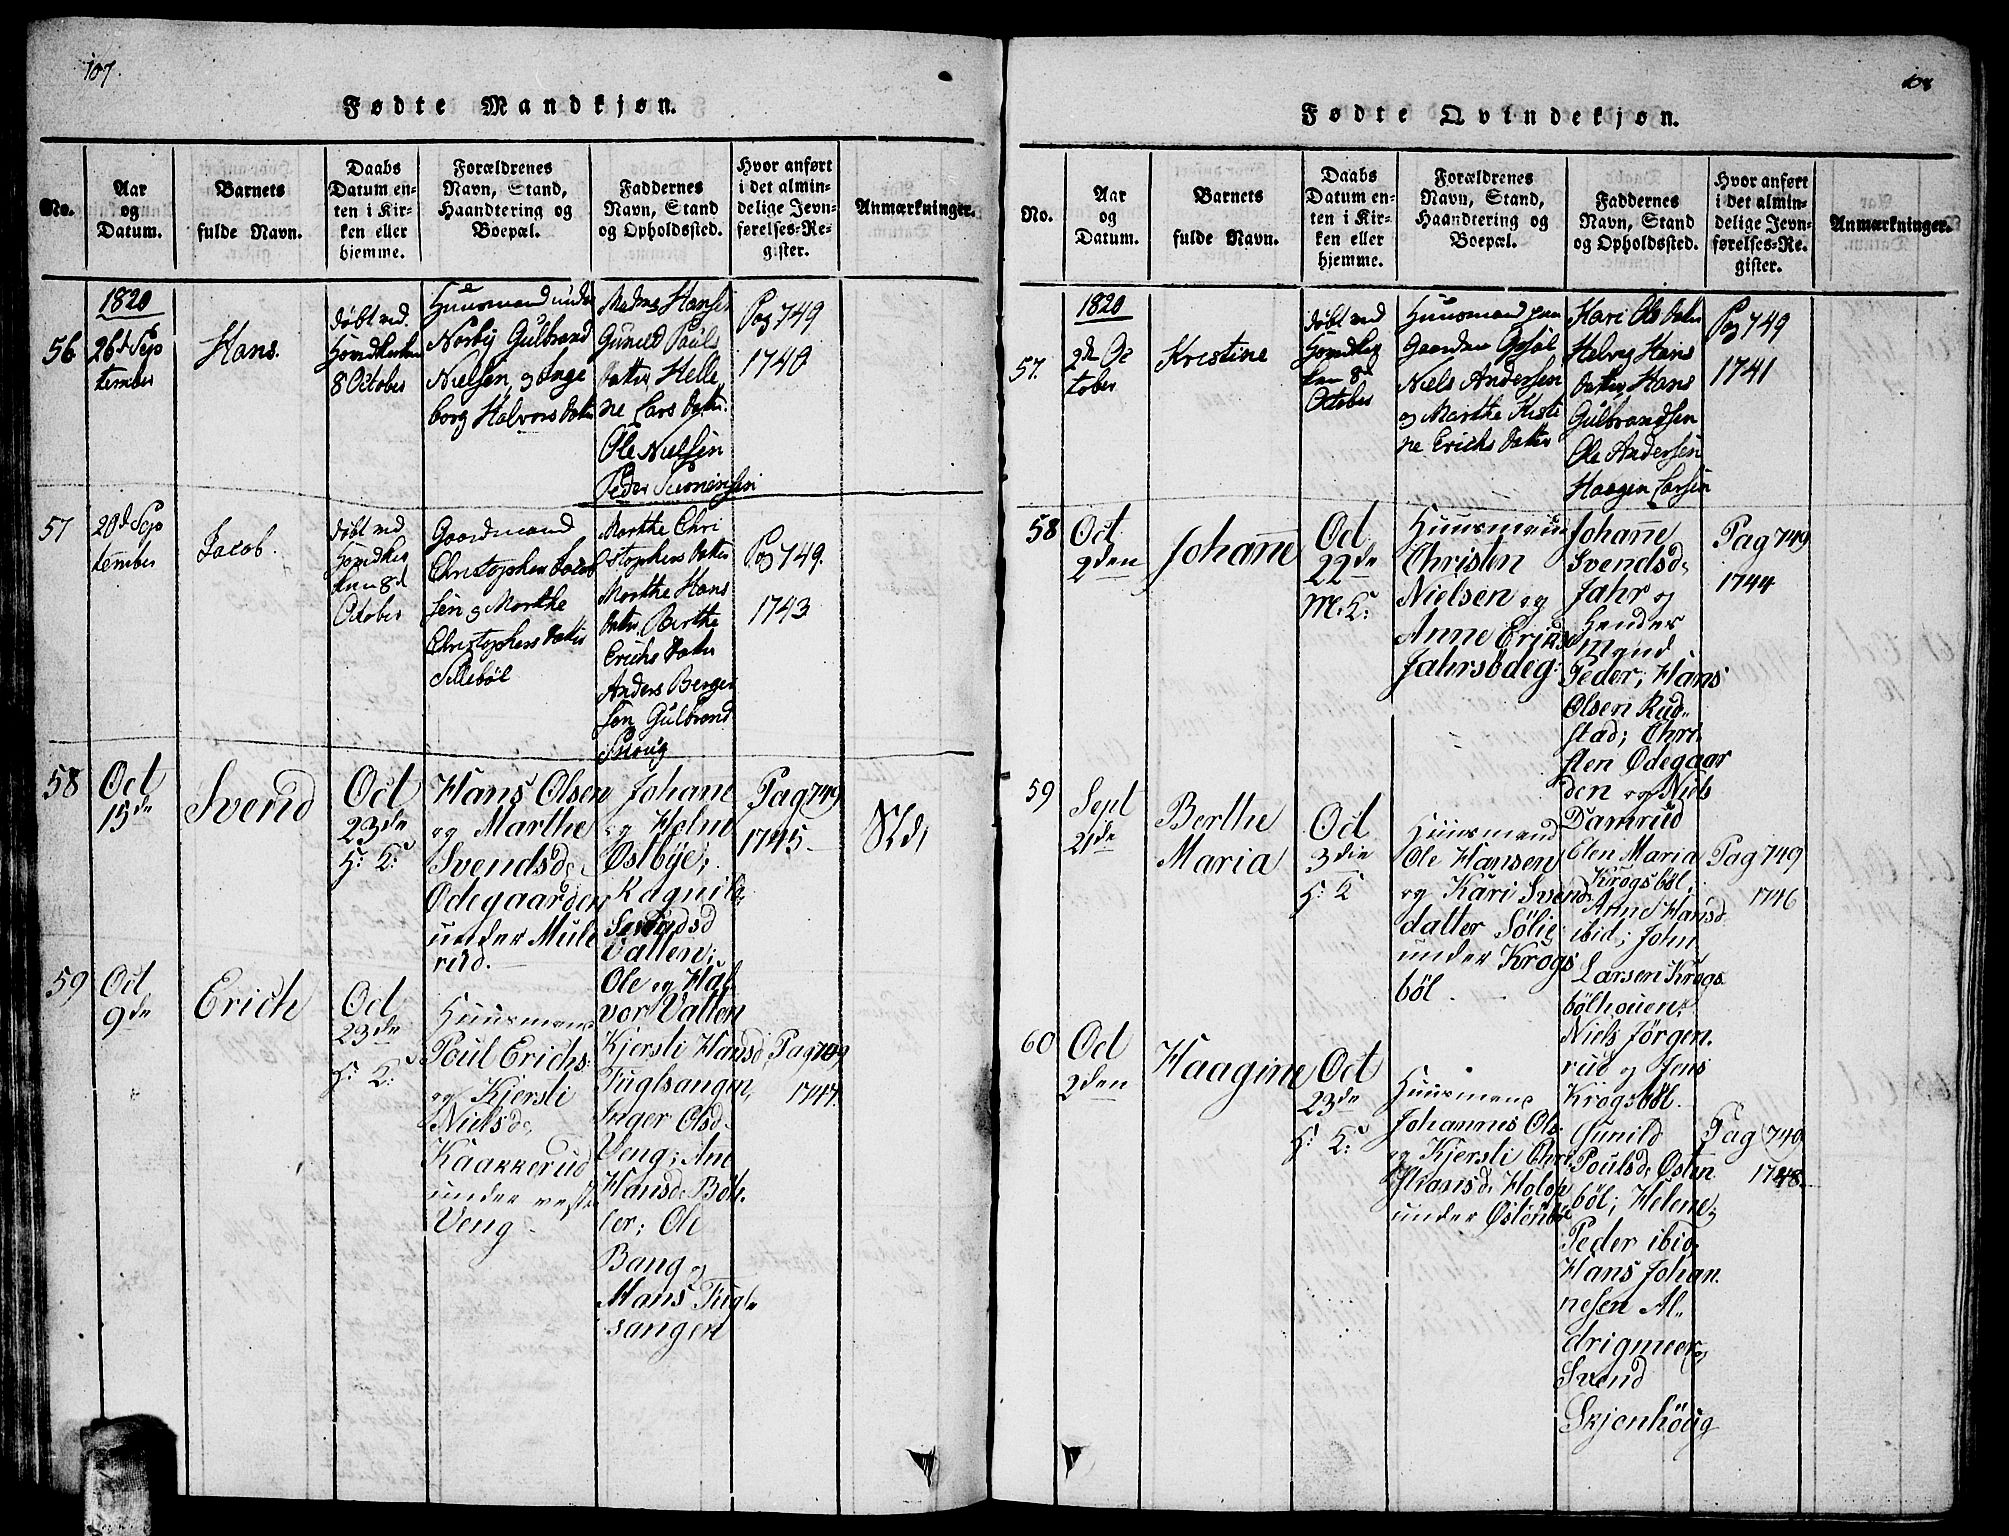 107.
Fødte Mandkjøn.
No.
Aar
og
Datum.
Barnets
fulde Navn.
Daabs
Datum en-
ten i Kir-
ken eller
hjemme.
Forældrenes
Navn, Stand,
Haandtering og
Boepæl.
Faddernes
Navn, Stand
og Opholdssted.
Hvor anført
i det almin-
delige Jevn-
førelses-Re-
gister.
Anmærkninger.
56
1820
26d Sep
tember
Hans.
døbt ved
8 October
Huusmand under
Norby Gulbrand
Nielsen, og Inge
borg Halvors datter
Hansen
Gunild Pouls
datter, Helle
ne Lars datter
Ole Nielsen
Peder
Pag 749
1740
57
20d Sep
tember
Jacob.
døbt ved
8d
October
Gaardmand
Christophen Jacob
sen og Marthe
Christophers datter
Sillebøl
Marthe Chri
stophers datter
Marthe Hans
datter, Berthe
Erichs datter
Anders Berger
sen Gulbrand
Pag 749.
1743
58
Oct
15de
Svend
Oct
23de
H: K:
Hans Olsen
og Marthe
Svendsd:
Ødegaarden
under Mule
rud.
Johane
og Helne
Østbye;
Ragnild
Svendsd
Vatten;
Ole og Hal
vor Vatten
Pag 749
1745
59
Oct
9de
Erich
Oct
23de
H: K:
Huusmand
Poul Erichs:
og Kjersti
Nielsd:
Kaakkerud
under vestre
Veng
Kjersti Hansd,
Fuglsangen,
Inger Olsd
Veng; Ane
Hansd: Böh
ler; Ole
Bang og
Hans Fugl
sangen
Pag 749
1747.
108
Fødte Qvindekjøn.
No.
Aar
og
Datum.
Barnets
fulde Navn.
Daabs
Datum en-
ten i Kir-
ken eller
hjemme.
Forældrenes
Navn, Stand,
Haandtering og
Boepæl.
Faddernes
Navn, Stand
og Opholdssted.
Hvor anført
i det almin-
delige Jevn-
førelses-Re-
gister.
Anmærkninger.
57.
1820
2d Oc
tober
Kristine
døbt ved
ken 8d
October
Huusmand paa
Gaarden Opsøl
Niels Andersen
og Marthe Kisti
ne Erichs datter
Kari Ols datter
Helvig Hans
datter, Hans
Gulbrandsen
Ole Andersen
Haagen Larsen
Pag 749
1741
58
Oct
2den
Johanne
Oct
22de
M: K:
Huusmand
Christen
Nielsen og
Anne Erichs
Jahrsödeg:
Johanne
Svendsd:
Jahr og
Hendes
Mand
Peder; Hans
Olsen Rud-
stad; Chri
sten Ødegaar
den og Niels
Damrud
Pag 749
1744
59
Sept
21de
Berthe
Maria
Oct
3die
H: K
Huusmand
Ole Hansen
og Kari Svends
datter Sölie
under Krogs
böl.
Olen Maria
Krogsböl,
Anne Hansd
ibid; John
Larsen Krogs
bölhouen;
Niels Jörgen
rud og Jens
Krogsböl.
Pag 749
1746
60
Oct
2den
Haagine
Oct
23de
H: K:
Huusmand
Johannes Ols:
og Kjersti Chri
stiansd: Holop
under Østenböl
Gunild
Poulsd: Østen
böl; Helene;
Peder ibid,
Hans Johan
nesen Al-
drigmeer,
Svend
Skjenhöug
Pag 749
1748.